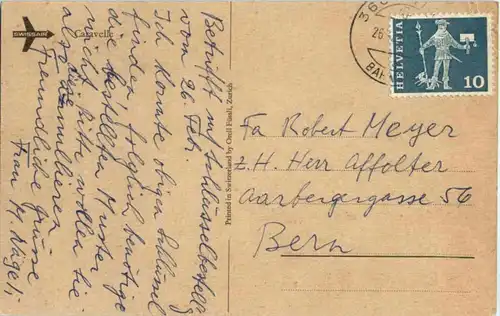 SWISSAIR
Caravelle
Betrifft m/ Schlüsselbestellg
vom 26. Feb.
Ich konnte obigen Schlüssel
finden folglich benötige
die bestellten Muster
nicht bitte wollen Sie
also annullieren
Freundliche Grüsse
Frau M. Nägeli
Printed in Switzerland by Orell Füssli, Zürich
HELVETIA
10
Fa Robert Meyer
z.H. Herr Affolter
Aarbergergasse 56
Bern